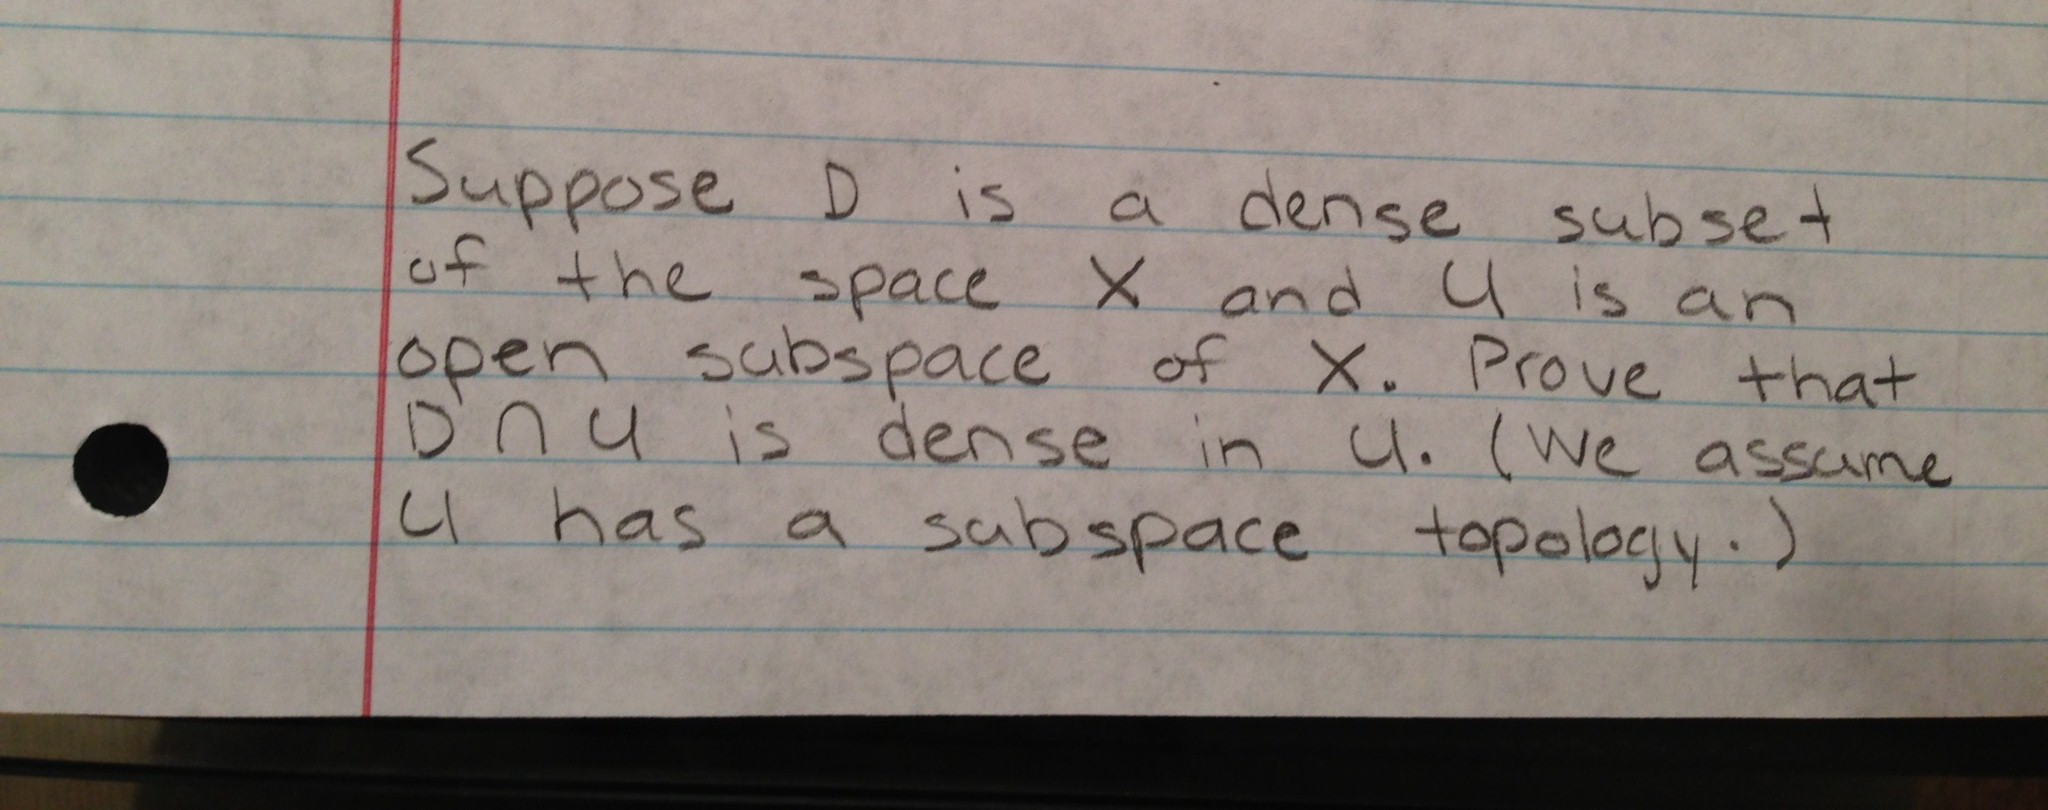 Suppose D is a dense subset
of the space X and U is an
open subspace of X. Prove that
D ∩ U is dense in U. (We assume
U has a subspace topology.)